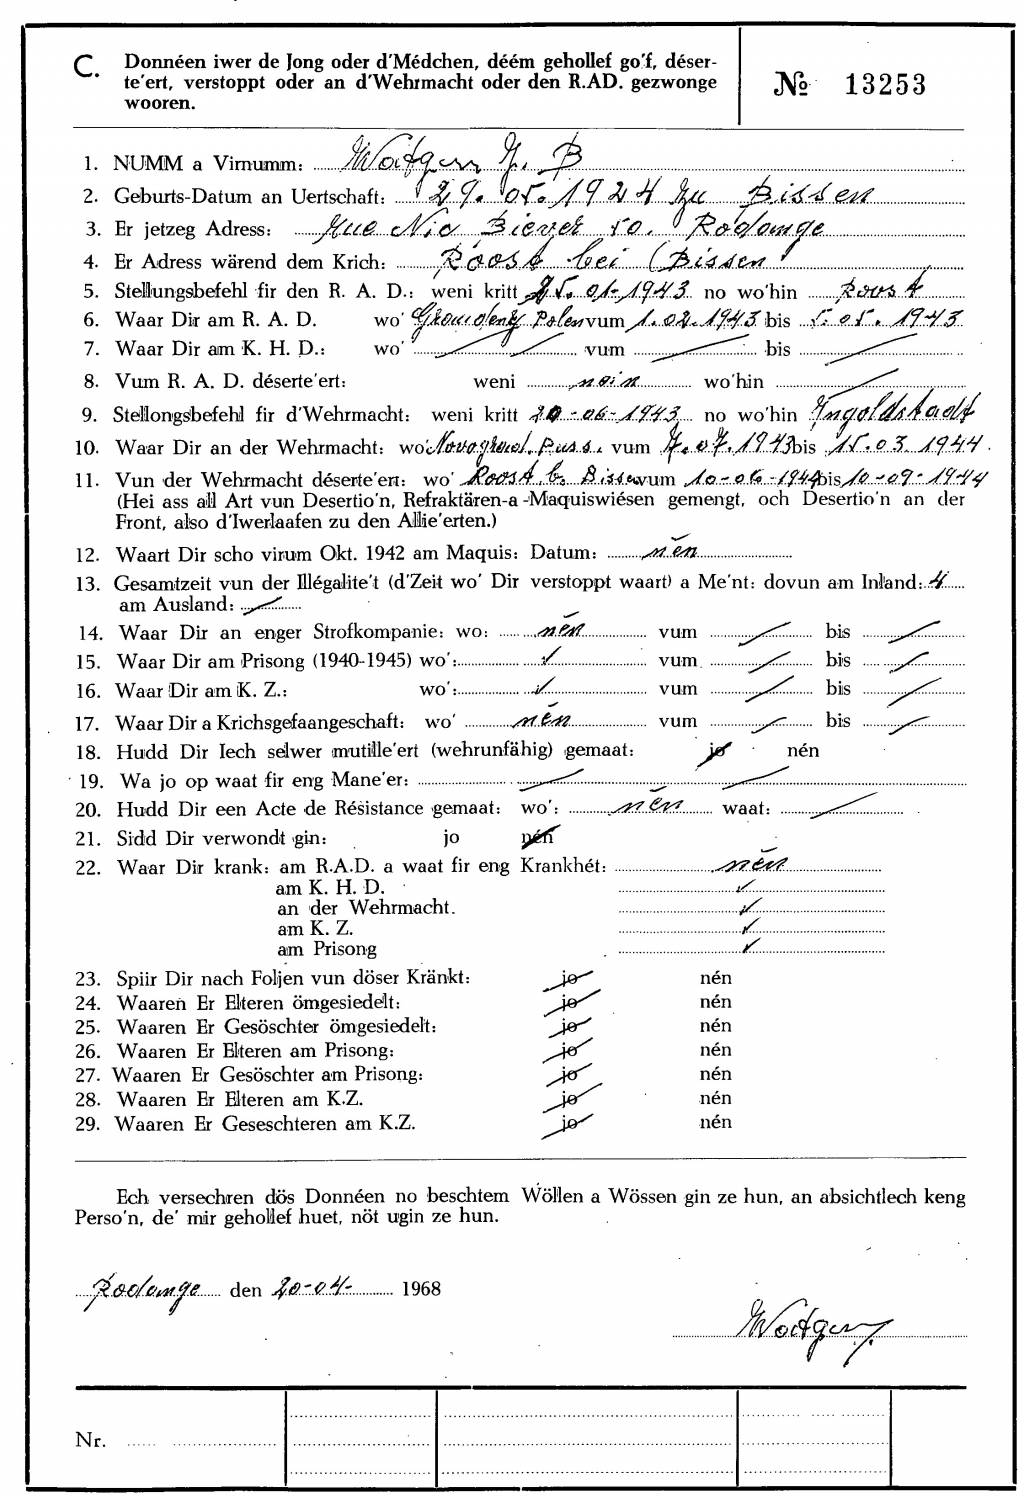 C. Donnéen iwer de Jong oder d'Médchen, déém gehollef go'f, déser-
te'ert, verstoppt oder an d'Wehrmacht oder den R.AD. gezwonge
wooren.
№ 13253
1. NUMM a Virnumm: Woitgen J. B
2. Geburts-Datum an Uertschaft: 29.05.1924 zu Bissen
3. Er jetzeg Adress: Rue Nic Biever 50. Rodange
4. Er Adress wärend dem Krich: Roost bei Bissen
5. Stellungsbefehl fir den R. A. D.: weni kritt 25.01-1943 no wo'hin Roost
6. Waar Dir am R. A. D. wo' Graudenz Polen vum 1.02.1943 bis 5.05.1943
7. Waar Dir am K. H. D.: wo' vum bis
8. Vum R. A. D. déserte'ert: weni nein wo'hin
9. Stellongsbefehl fir d'Wehrmacht: weni kritt 20-06-1943 no wo'hin Ingoldstadt
10. Waar Dir an der Wehrmacht: wo: Novogrod. Russ. vum 7.07.1943 bis 15.03.1944.
11. Vun der Wehrmacht déserte'ert: wo' Roost b. Bissen vum 10-06-1944 bis 10-09-1944
(Hei ass all Art vun Desertio'n, Refraktären-a-Maquiswiésen gemengt, och Desertio'n an der
Front, also d'Iwerlaafen zu den Allie'erten.)
12. Waart Dir scho virum Okt. 1942 am Maquis: Datum: nén
13. Gesamtzeit vun der Illégalite't (d'Zeit wo' Dir verstoppt waart) a Me'nt: dovun am Inland: 4
am Ausland:
14. Waar Dir an enger Strofkompanie: wo: nén vum bis
15. Waar Dir am Prisong (1940-1945) wo': vum bis
16. Waar Dir am K. Z.: wo': vum bis
17. Waar Dir a Krichsgefaangeschaft: wo' nén vum bis
18. Hudd Dir Iech selwer mutille'ert (wehrunfähig) gemaat: jo nén
19. Wa jo op waat fir eng Mane'er:
20. Hudd Dir een Acte de Résistance gemaat: wo': nén waat:
21. Sidd Dir verwondt gin: jo nén
22. Waar Dir krank: am R.A.D. a waat fir eng Krankhét: nén
am K. H. D.
an der Wehrmacht.
am K. Z.
am Prisong
23. Spiir Dir nach Foljen vun döser Kränkt: jo nén
24. Waaren Er Elteren ömgesiedelt: jo nén
25. Waaren Er Gesöschter ömgesiedelt: jo nén
26. Waaren Er Elteren am Prisong: jo nén
27. Waaren Er Gesöschter am Prisong: jo nén
28. Waaren Er Elteren am K.Z. jo nén
29. Waaren Er Geseschteren am K.Z. jo nén
Ech versechren dös Donnéen no beschtem Wöllen a Wössen gin ze hun, an absichtlech keng
Perso'n, de' mir gehollef huet, nöt ugin ze hun.
Rodange den 20-04- 1968
Woitgen J.
Nr.